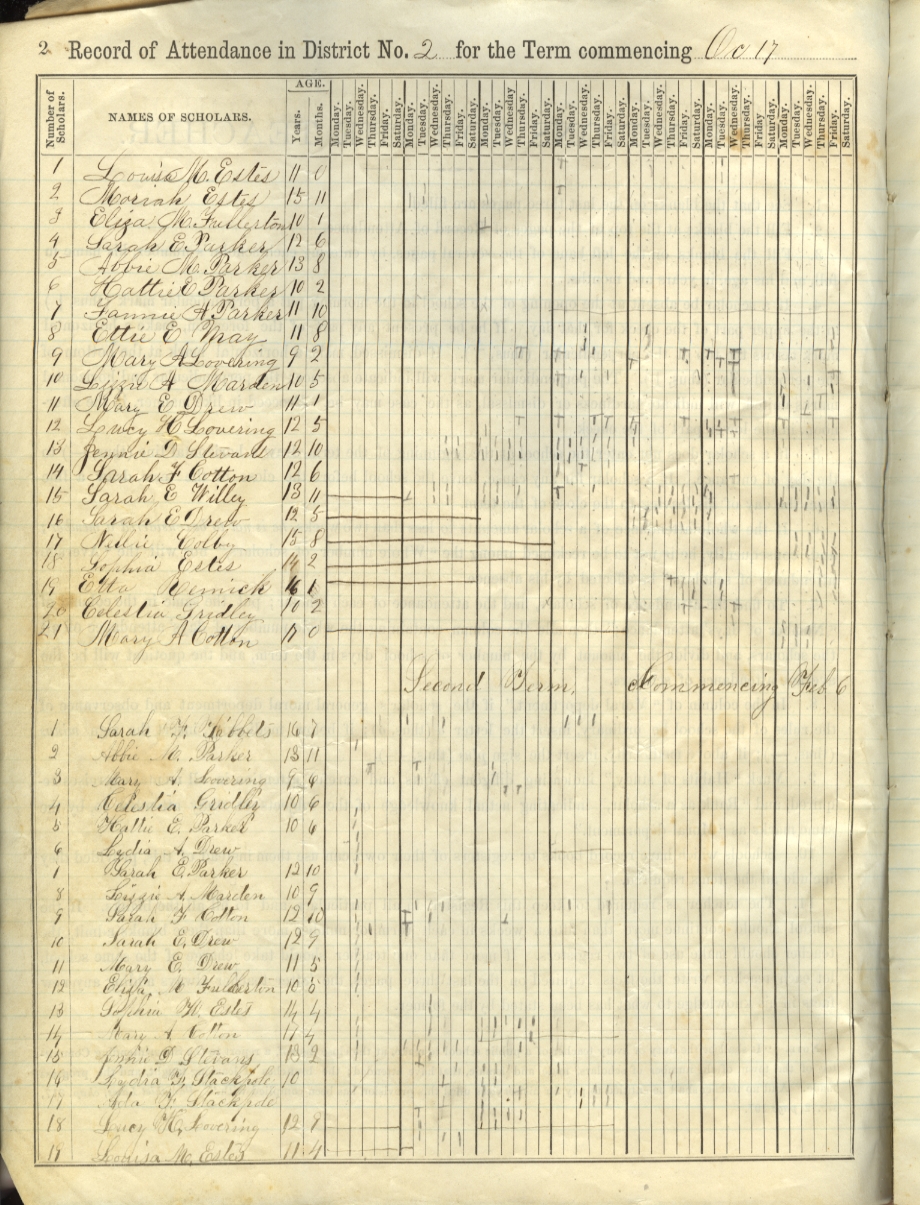 2 Record of Attendance in District No. 2 for the Term commencing Oc 17
Number of Scholars. NAMES OF SCHOLARS. AGE. Years. Months. Monday. Tuesday. Wednesday. Thursday. Friday. Saturday. Monday. Tuesday. Wednesday. Thursday. Friday. Saturday. Monday. Tuesday. Wednesday Thursday. Friday. Saturday. Monday. Tuesday. Wednesday. Thursday. Friday. Saturday. Monday. Tuesday. Wednesday. Thursday. Friday. Saturday. Monday. Tuesday. Wednesday. Thursday. Friday Saturday. Monday. Tuesday. Wednesday. Thursday. Friday. Saturday.
1 Louisa M. Estes 11 0
2 Moriah Estes 15 11
3 Eliza M. Fullerton 10 1
4 Sarah E. Parker 12 6
5 Abbie M. Parker 13 8
6 Hattie E Parker 10 2
7 Fannie A. Parker 11 10
8 Ettie E May 11 8
9 Mary A Lovering 9 2
10 Lizzie A Marden 10 5
11 Mary E Drew 11 1
12 Lucy H Lovering 12 5
13 Jennie D Stevans 12 10
14 Sarah F Cotton 12 6
15 Sarah E Willey 13 11
16 Sarah E Drew 12 5
17 Nellie Colby 15 8
18 Sophia Estes 14 2
19 Etta Remick 16 1
20 Celestia Gridley 10 2
21 Mary A Cotton 17 0
Second Term, Commencing Feb 6
1 Sarah F. Tibbets 16 7
2 Abbie M. Parker 13 11
3 Mary A. Lovering 9 6
4 Celestia Gridley 10 6
5 Hattie E. Parker 10 6
6 Lydia A. Drew
7 Sarah E. Parker 12 10
8 Lizzie A. Marden 10 9
9 Sarah F Cotton 12 10
10 Sarah E. Drew 12 9
11 Mary E. Drew 11 5
12 Eliza M Fullerton 10 5
13 Sophia H. Estes 14 4
14 Mary A. Cotton 17 4
15 Jennie D Stevans 13 2
16 Lydia F. Stackpole 10
17 Ada F Stackpole
18 Lucy H. Lovering 12 9
19 Louisa M. Estes 11 4